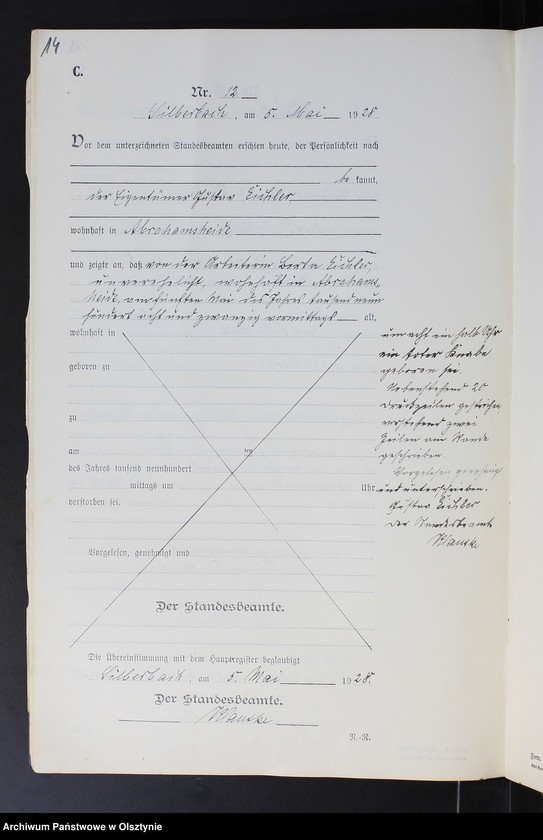 14
C.
Nr. 12
Silberbach, am 5. Mai 1928
Vor dem unterzeichneten Standesbeamten erschien heute, der Persönlichkeit nach
be kannt,
der Eigentümer Gustav Eichler
wohnhaft in Abrahamsheide
und zeigte an, daß von der Arbeiterin Berta Eichler,
unverehelicht, wohnhaft in Abrahams-
heide, am fünften Mai des Jahres tausend neun
hundert acht und zwanzig vormittags alt,
wohnhaft in
geboren zu
zu
am ten
des Jahres tausend neunhundert
mittags um Uhr
verstorben sei.
Vorgelesen, genehmigt und
Der Standesbeamte.
um acht ein halb Uhr
ein toter Knabe
geboren sei.
Nebenstehend 20
Druckzeilen gestrichen
vorstehend zwei
Zeilen am Rande
geschrieben.
Vorgelesen genehmigt
und unterschrieben.
Gustav Eichler
Der Standesbeamte
Die Übereinstimmung mit dem Hauptregister beglaubigt
Silberbach, am 5. Mai 1928.
Der Standesbeamte.
N.-R.
Archiwum Państwowe w Olsztynie